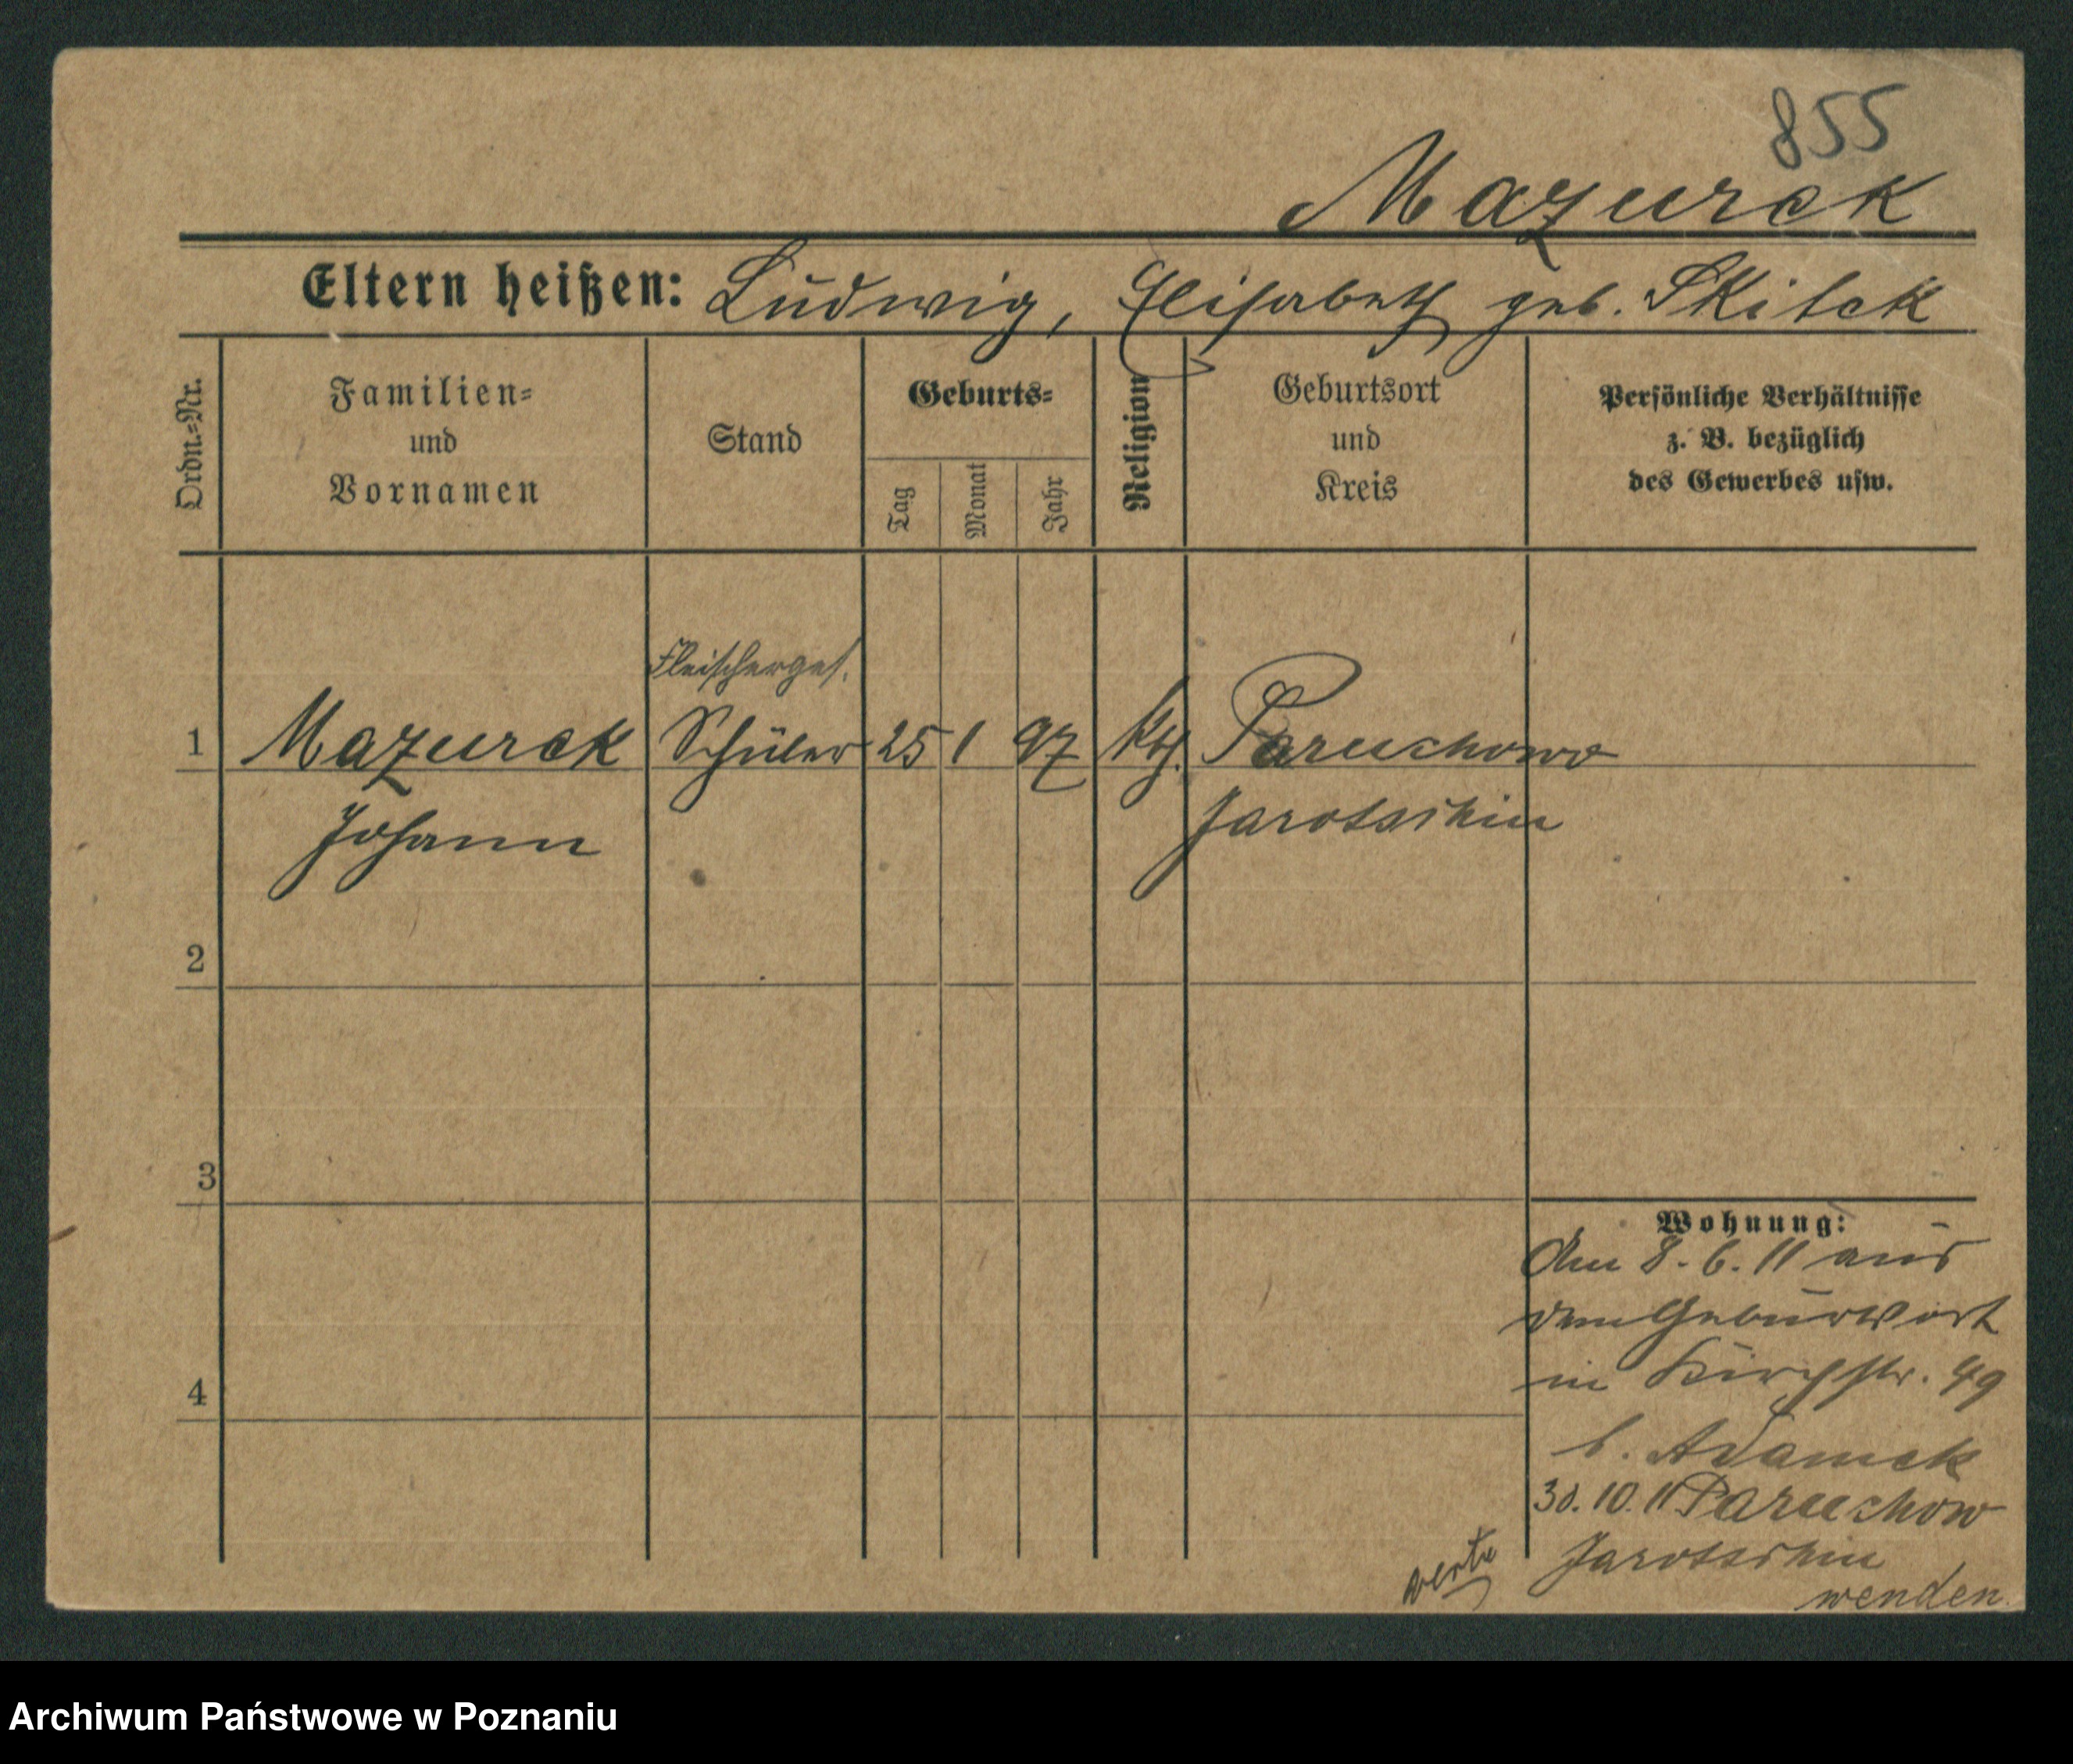 855
Mazurek
Eltern heißen: Ludwig, Elisabeth geb. Skitek
Ordn.-Nr.
Familien-
und
Vornamen
Stand
Geburts-
Tag
Monat
Jahr
Religion
Geburtsort
und
Kreis
Persönliche Verhältnisse
z. B. bezüglich
des Gewerbes usw.
Fleischerges.
1 Mazurek Schüler 25 1 97 kth. Paruschowo
Johann Jarotschin
2
3
4
Wohnung:
Am 8.6.11 aus
dem Geburtsort
in Kirchstr. 49
b. Adamek
30.10.11 Paruschow
Jarotschin
verte
wenden.
Archiwum Państwowe w Poznaniu